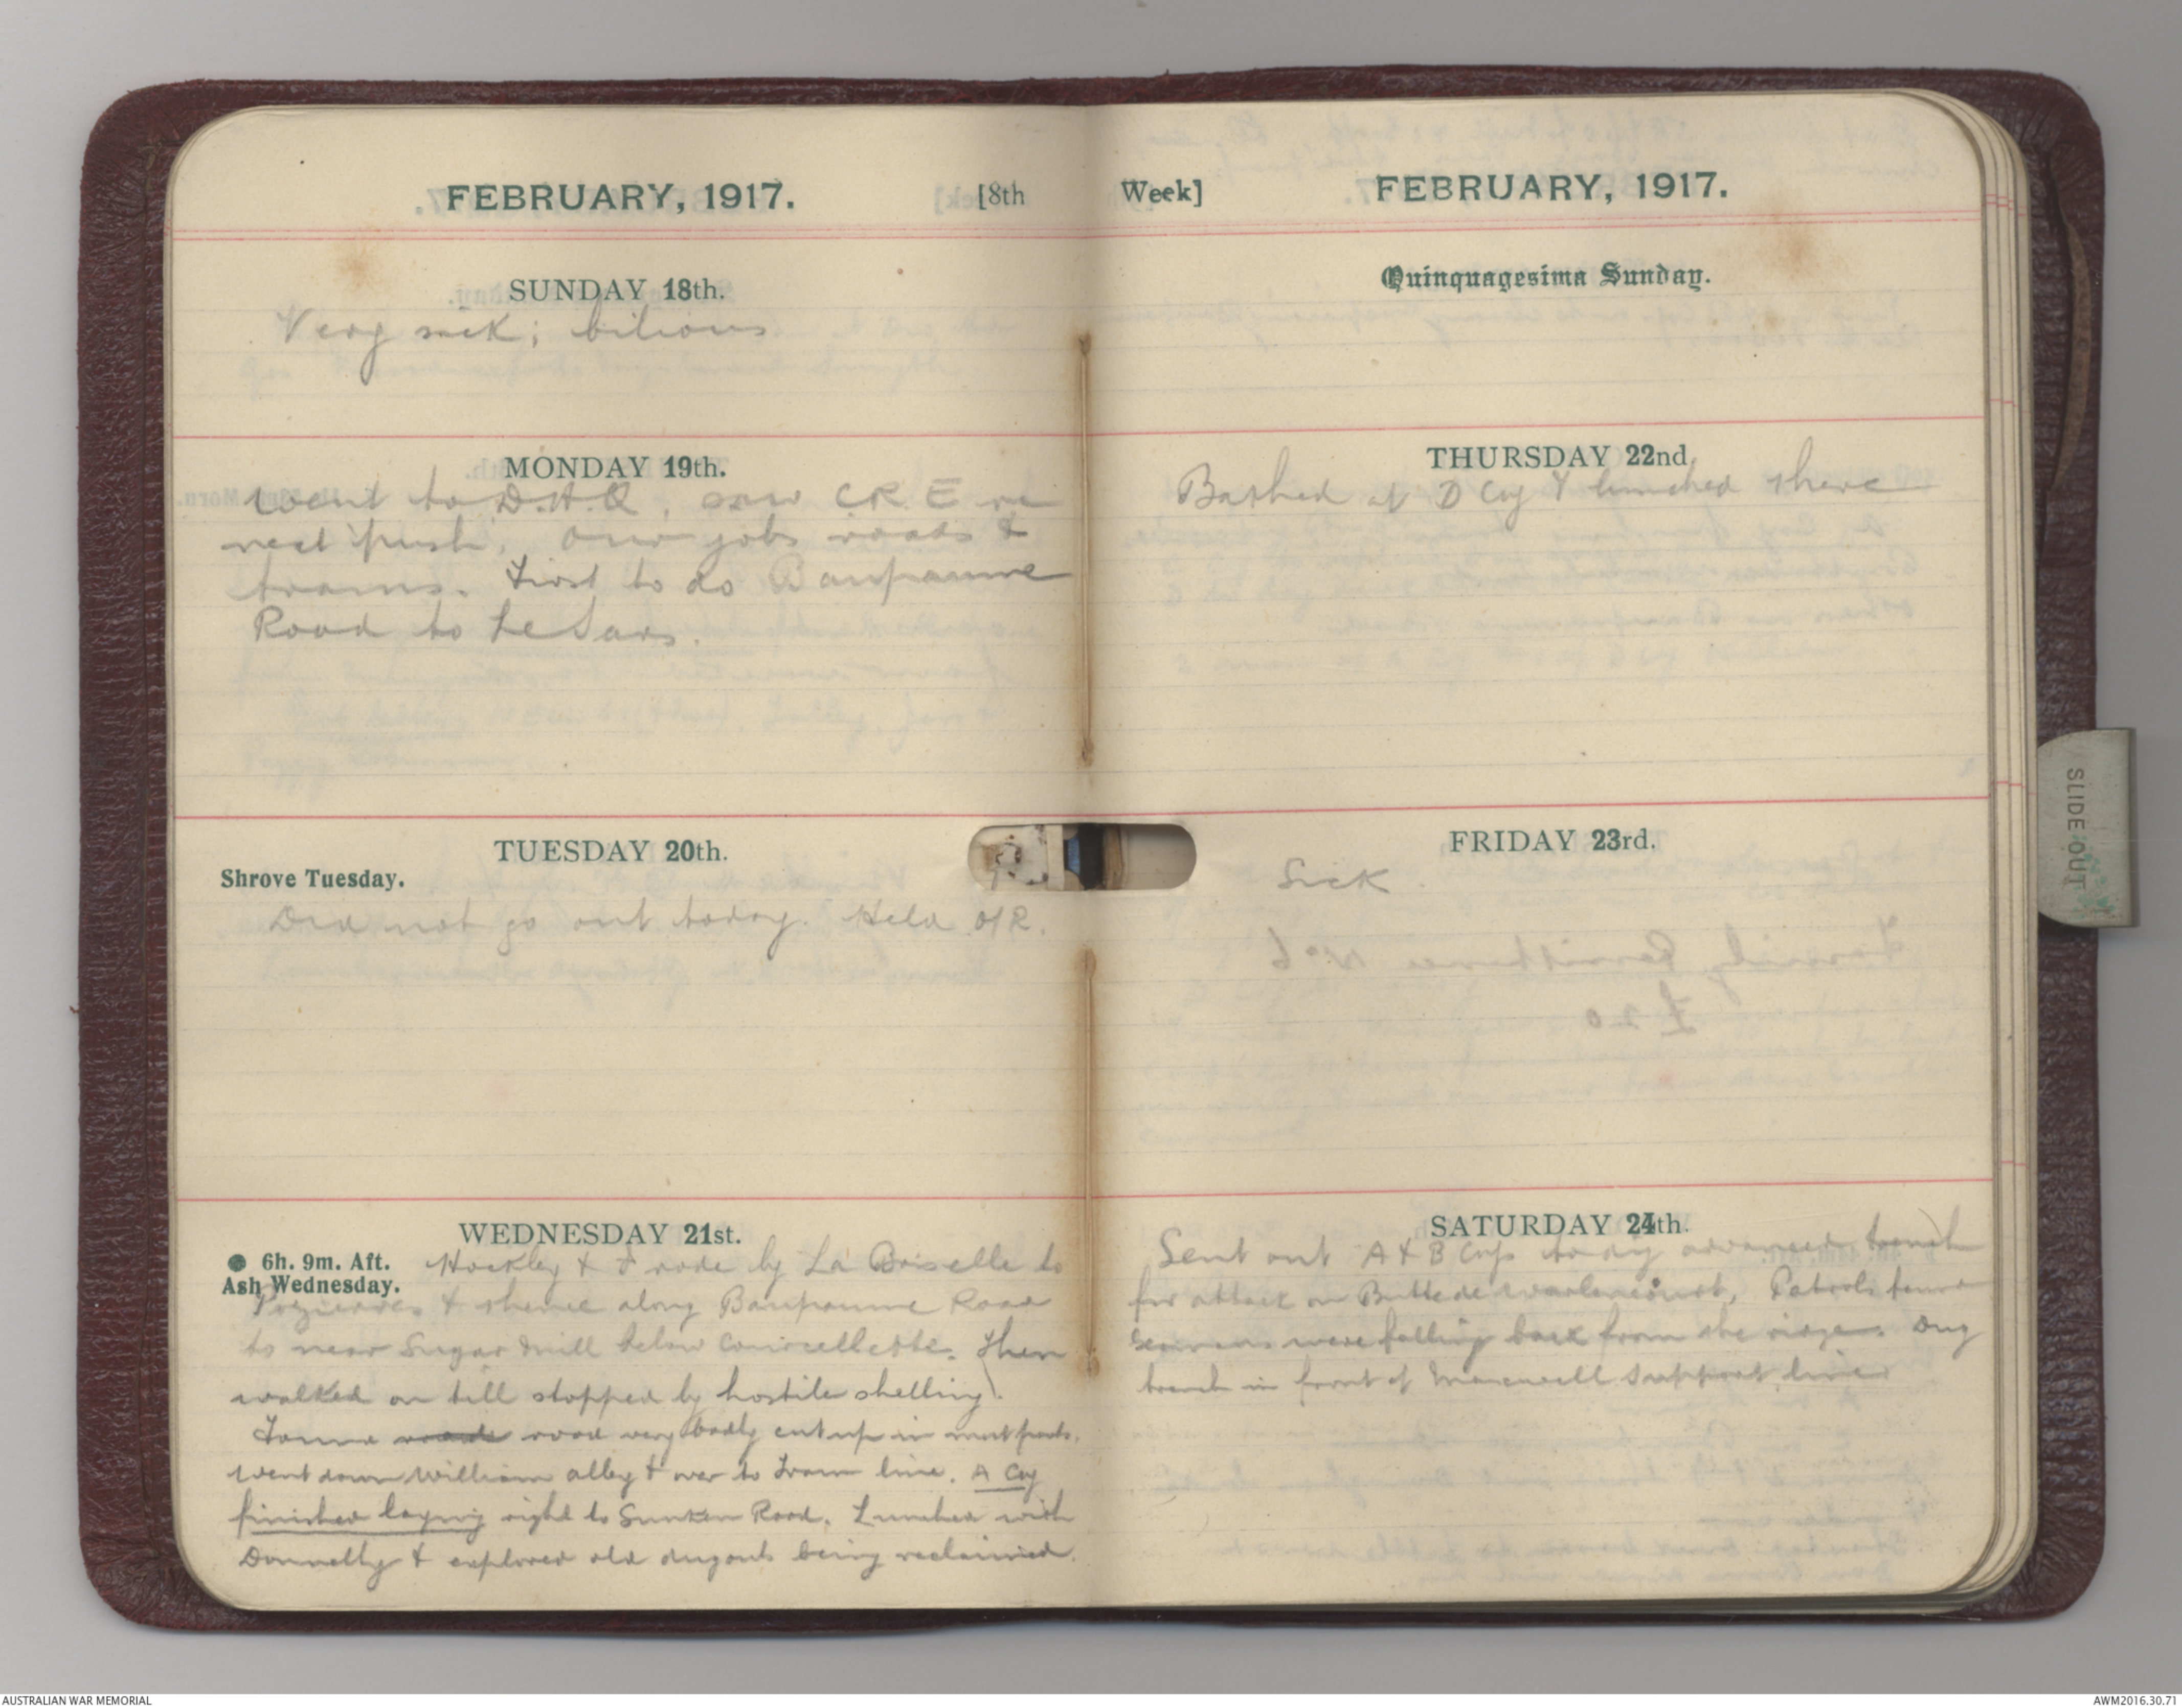 FEBRUARY, 1917. [8th
SUNDAY 18th.
Very sick; bilious
MONDAY 19th.
Went to D.H.Q, saw C.R.E re
next push. Our jobs roads &
trams. First to do Baupaume
Road to Le Sars.
TUESDAY 20th.
Shrove Tuesday.
Did not go out today. Held O/R.
WEDNESDAY 21st.
● 6h. 9m. Aft.
Ash Wednesday.
Hockley & I rode by La Boiselle to
Pozieres & thence along Baupaume Road
to near Sugar Mill below Courcellette. Then
walked on till stopped by hostile shelling.
Found roads road very badly cut up in most parts.
Went down William alley & over to Tram line. A Coy
finished laying right to Sunken Road. Lunched with
Donnelly & explored old dugouts being reclaimed.
Week] FEBRUARY, 1917.
Quinquagesima Sunday.
THURSDAY 22nd.
Bathed at D Coy & lunched there
FRIDAY 23rd.
Sick.
SATURDAY 24th.
Sent out A & B Coys to dig advanced trench
for attack on Butte de Warlencourt. Patrols found
Germans were falling back from the ridge. Dug
trench in front of Maxwell Support line
SLIDE OUT
AUSTRALIAN WAR MEMORIAL
AWM2016.30.71